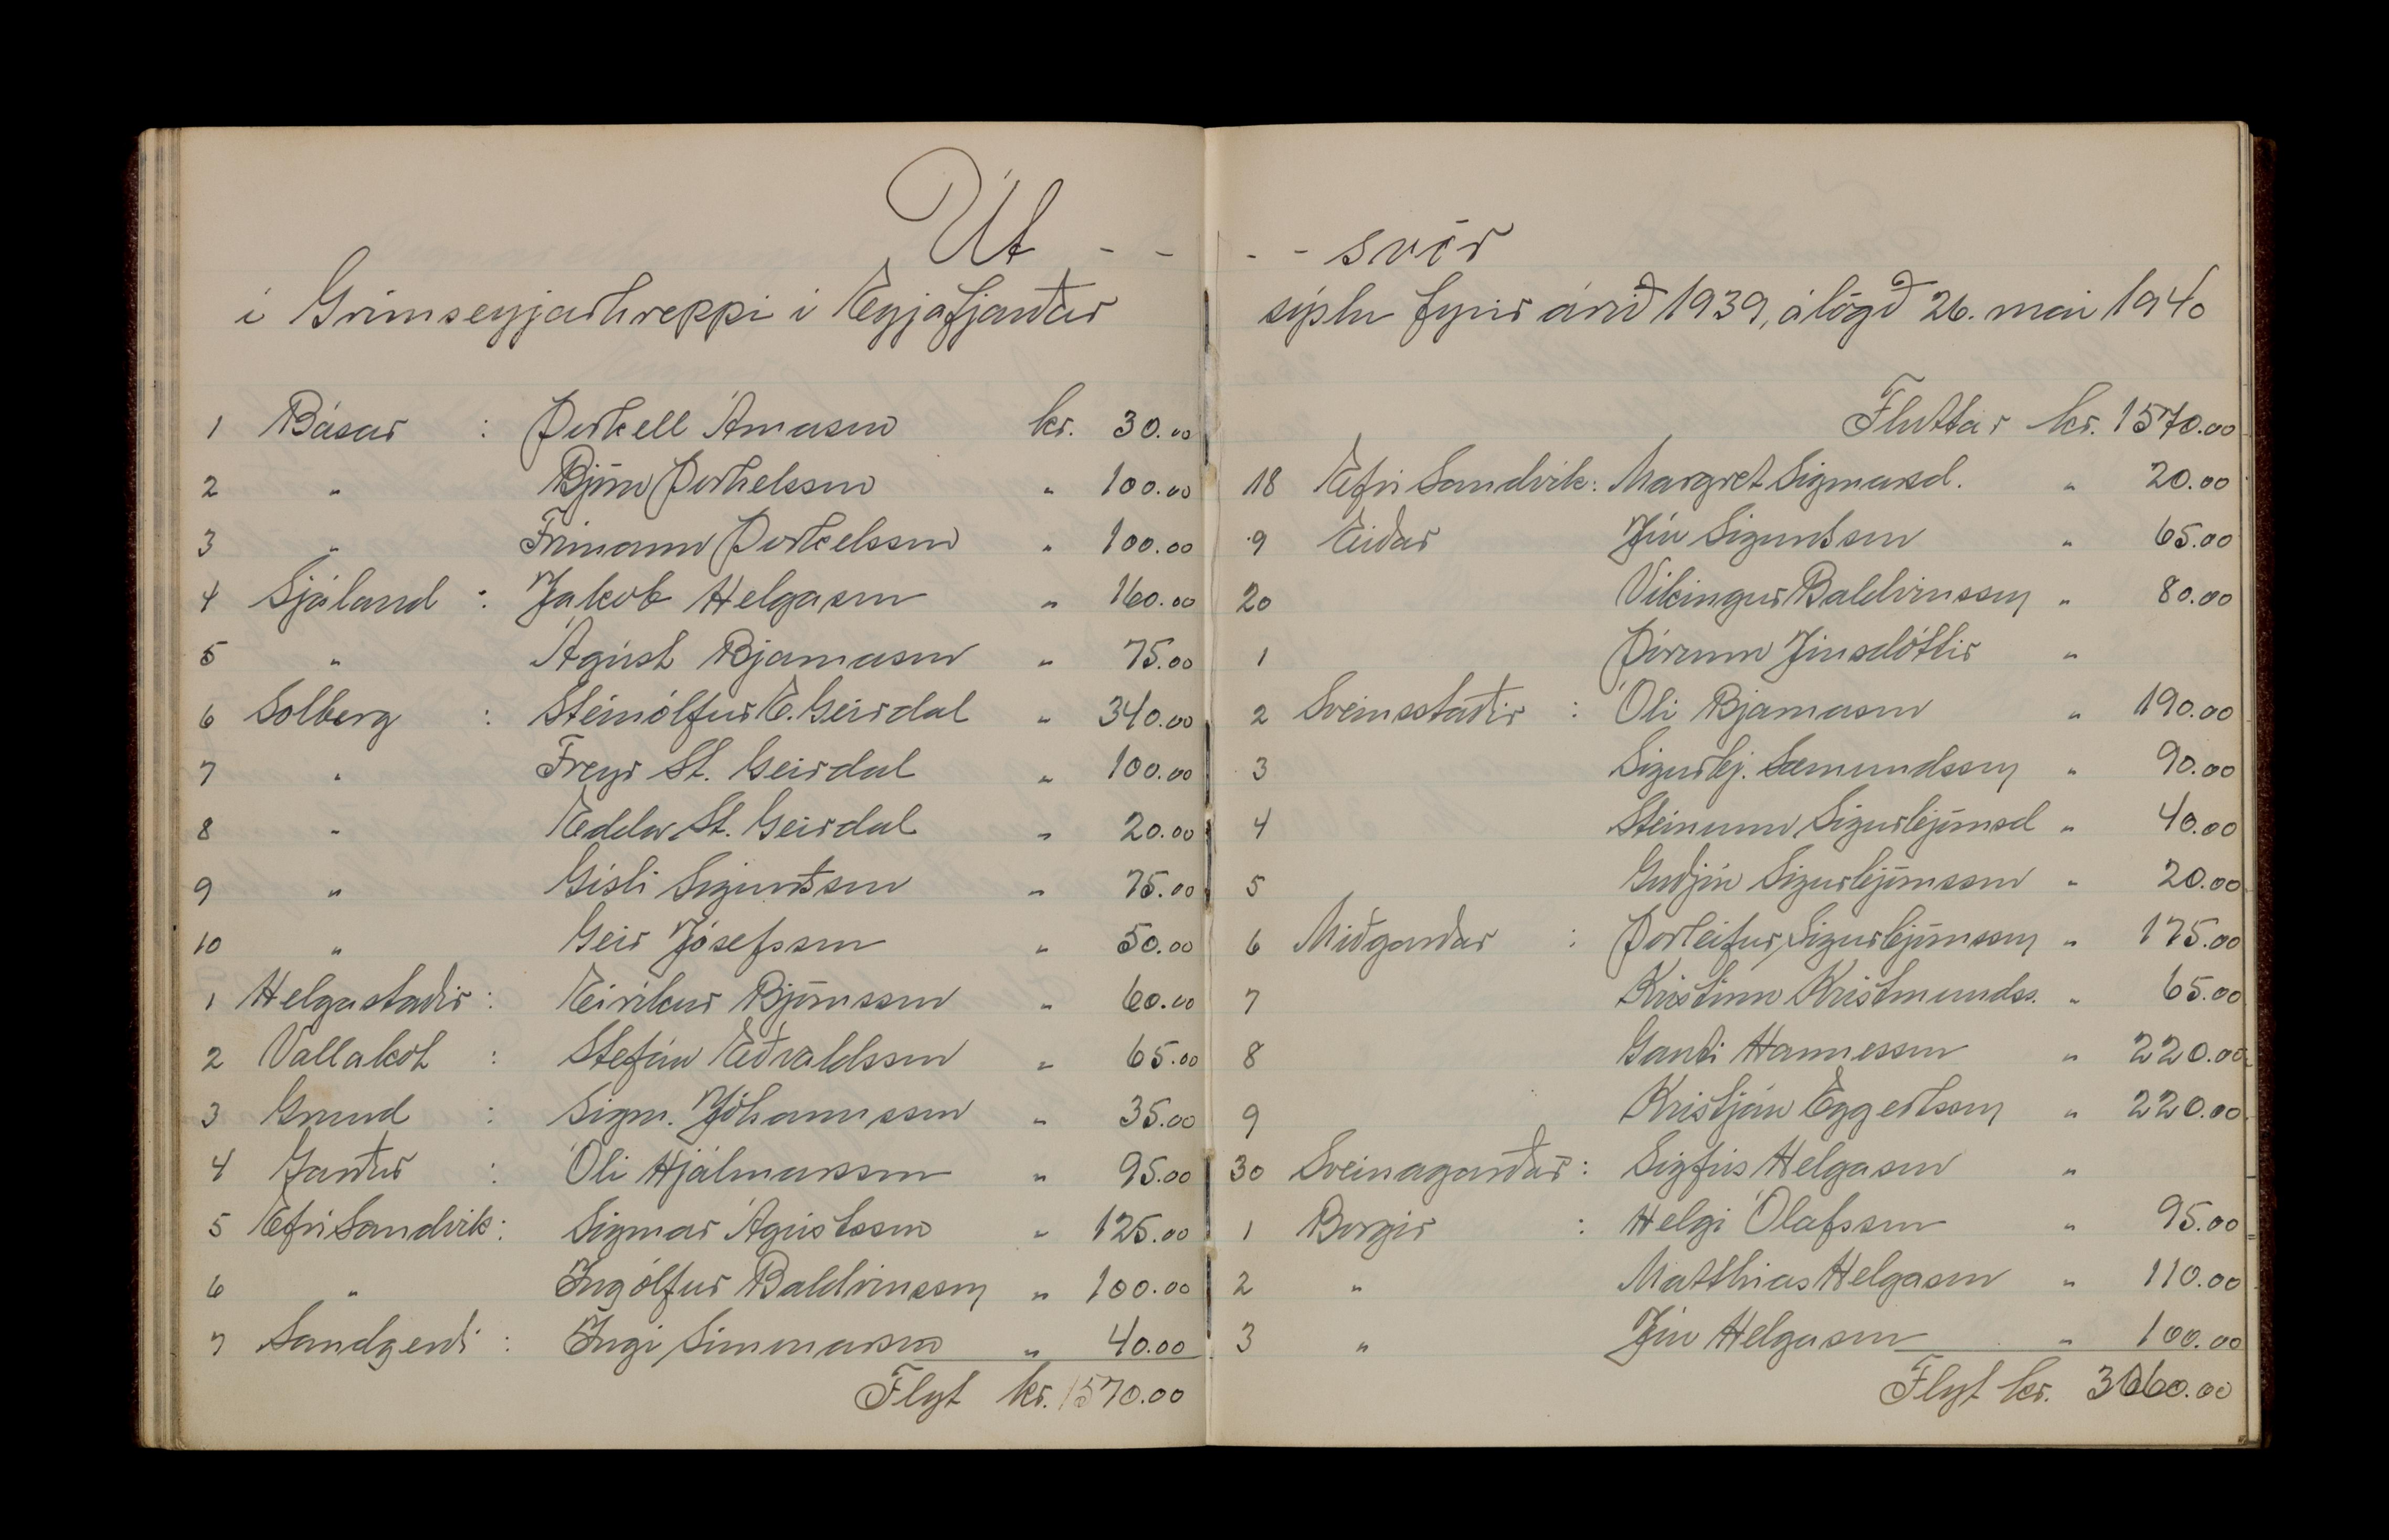 Út - - - - svör
í Grímseyjarhreppi í Eyjafjarðar sýslu fyrir árið 1939, álögð 26. maí 1940
1 Básar : Þorkell Árnason kr. 30.00
2 " Björn Þorkelsson " 100.00
3 " Frímann Þorkelsson " 100.00
4 Sjáland : Jakob Helgason " 160.00
5 " Ágúst Bjarnason " 75.00
6 Sólberg : Steinólfur E. Geirdal " 340.00
7 " Freyr St. Geirdal " 100.00
8 " Edda St. Geirdal " 20.00
9 " Gísli Sigurðsson " 75.00
10 " Geir Jósefsson " 50.00
1 Helgastaðir : Eiríkur Björnsson " 60.00
2 Vallakot : Stefán Eðvaldsson " 65.00
3 Grund : Sigm. Jóhannsson " 35.00
4 Jarður : Óli Hjálmarsson " 95.00
5 Efri Sandvík : Sigmar Ágústsson " 125.00
6 " Ingólfur Baldvinsson " 100.00
7 Sandgerði : Ingi Simmarsson " 40.00
Flyt kr. 1570.00
Fluttar kr. 1570.00
18 Efri Sandvík : Margret Sigmarsd. " 20.00
9 Eiðar Jón Sigurðsson " 65.00
20 Víkingur Baldvinsson " 80.00
1 Þórunn Jónsdóttir "
2 Sveinsstaðir : Óli Bjarnason " 190.00
3 Sigurbj. Sæmundsson " 90.00
4 Steinunn Sigurbjörnsd " 40.00
5 Guðjón Sigurbjörnsson " 20.00
6 Miðgarðar : Þorleifur Sigurbjörnsson " 175.00
7 Kristinn Kristmundss. " 65.00
8 Garðri Hannesson " 220.00
9 Kristján Eggertsson " 220.00
30 Sveinagarðar : Sigfús Helgason "
1 Borgir : Helgi Ólafsson " 95.00
2 " Matthías Helgason " 110.00
3 " Jón Helgason " 100.00
Flyt kr. 3060.00